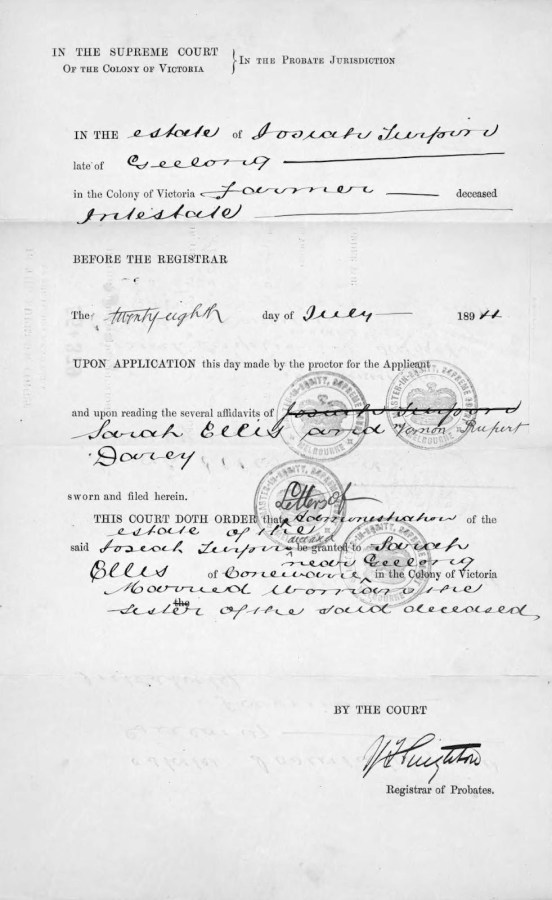 IN THE SUPREME COURT
OF THE COLONY OF VICTORIA
IN THE PROBATE JURISDICTION
IN THE estate of Josiah Turpin
late of Geelong
in the Colony of Victoria Farmer deceased
Intestate
BEFORE THE REGISTRAR
The twenty eighth day of July 1894
UPON APPLICATION this day made by the proctor for the Applicant
and upon reading the several affidavits of Josiah Turpin
Sarah Ellis and Vernon Rupert
Darcy
sworn and filed herein.
Letters of
THIS COURT DOTH ORDER that Administration of the
estate of the
deceased
said Josiah Turpin be granted to Sarah
near Geelong
Ellis of Connewarre in the Colony of Victoria
Married Woman the
the
sister of the said deceased
BY THE COURT
Registrar of Probates.
MASTER-IN-EQUITY, SUPREME
MELBOURNE
MASTER-IN-EQUITY, SUPREME
MELBOURNE
MASTER-IN-EQUITY, SUPREME
MELBOURNE